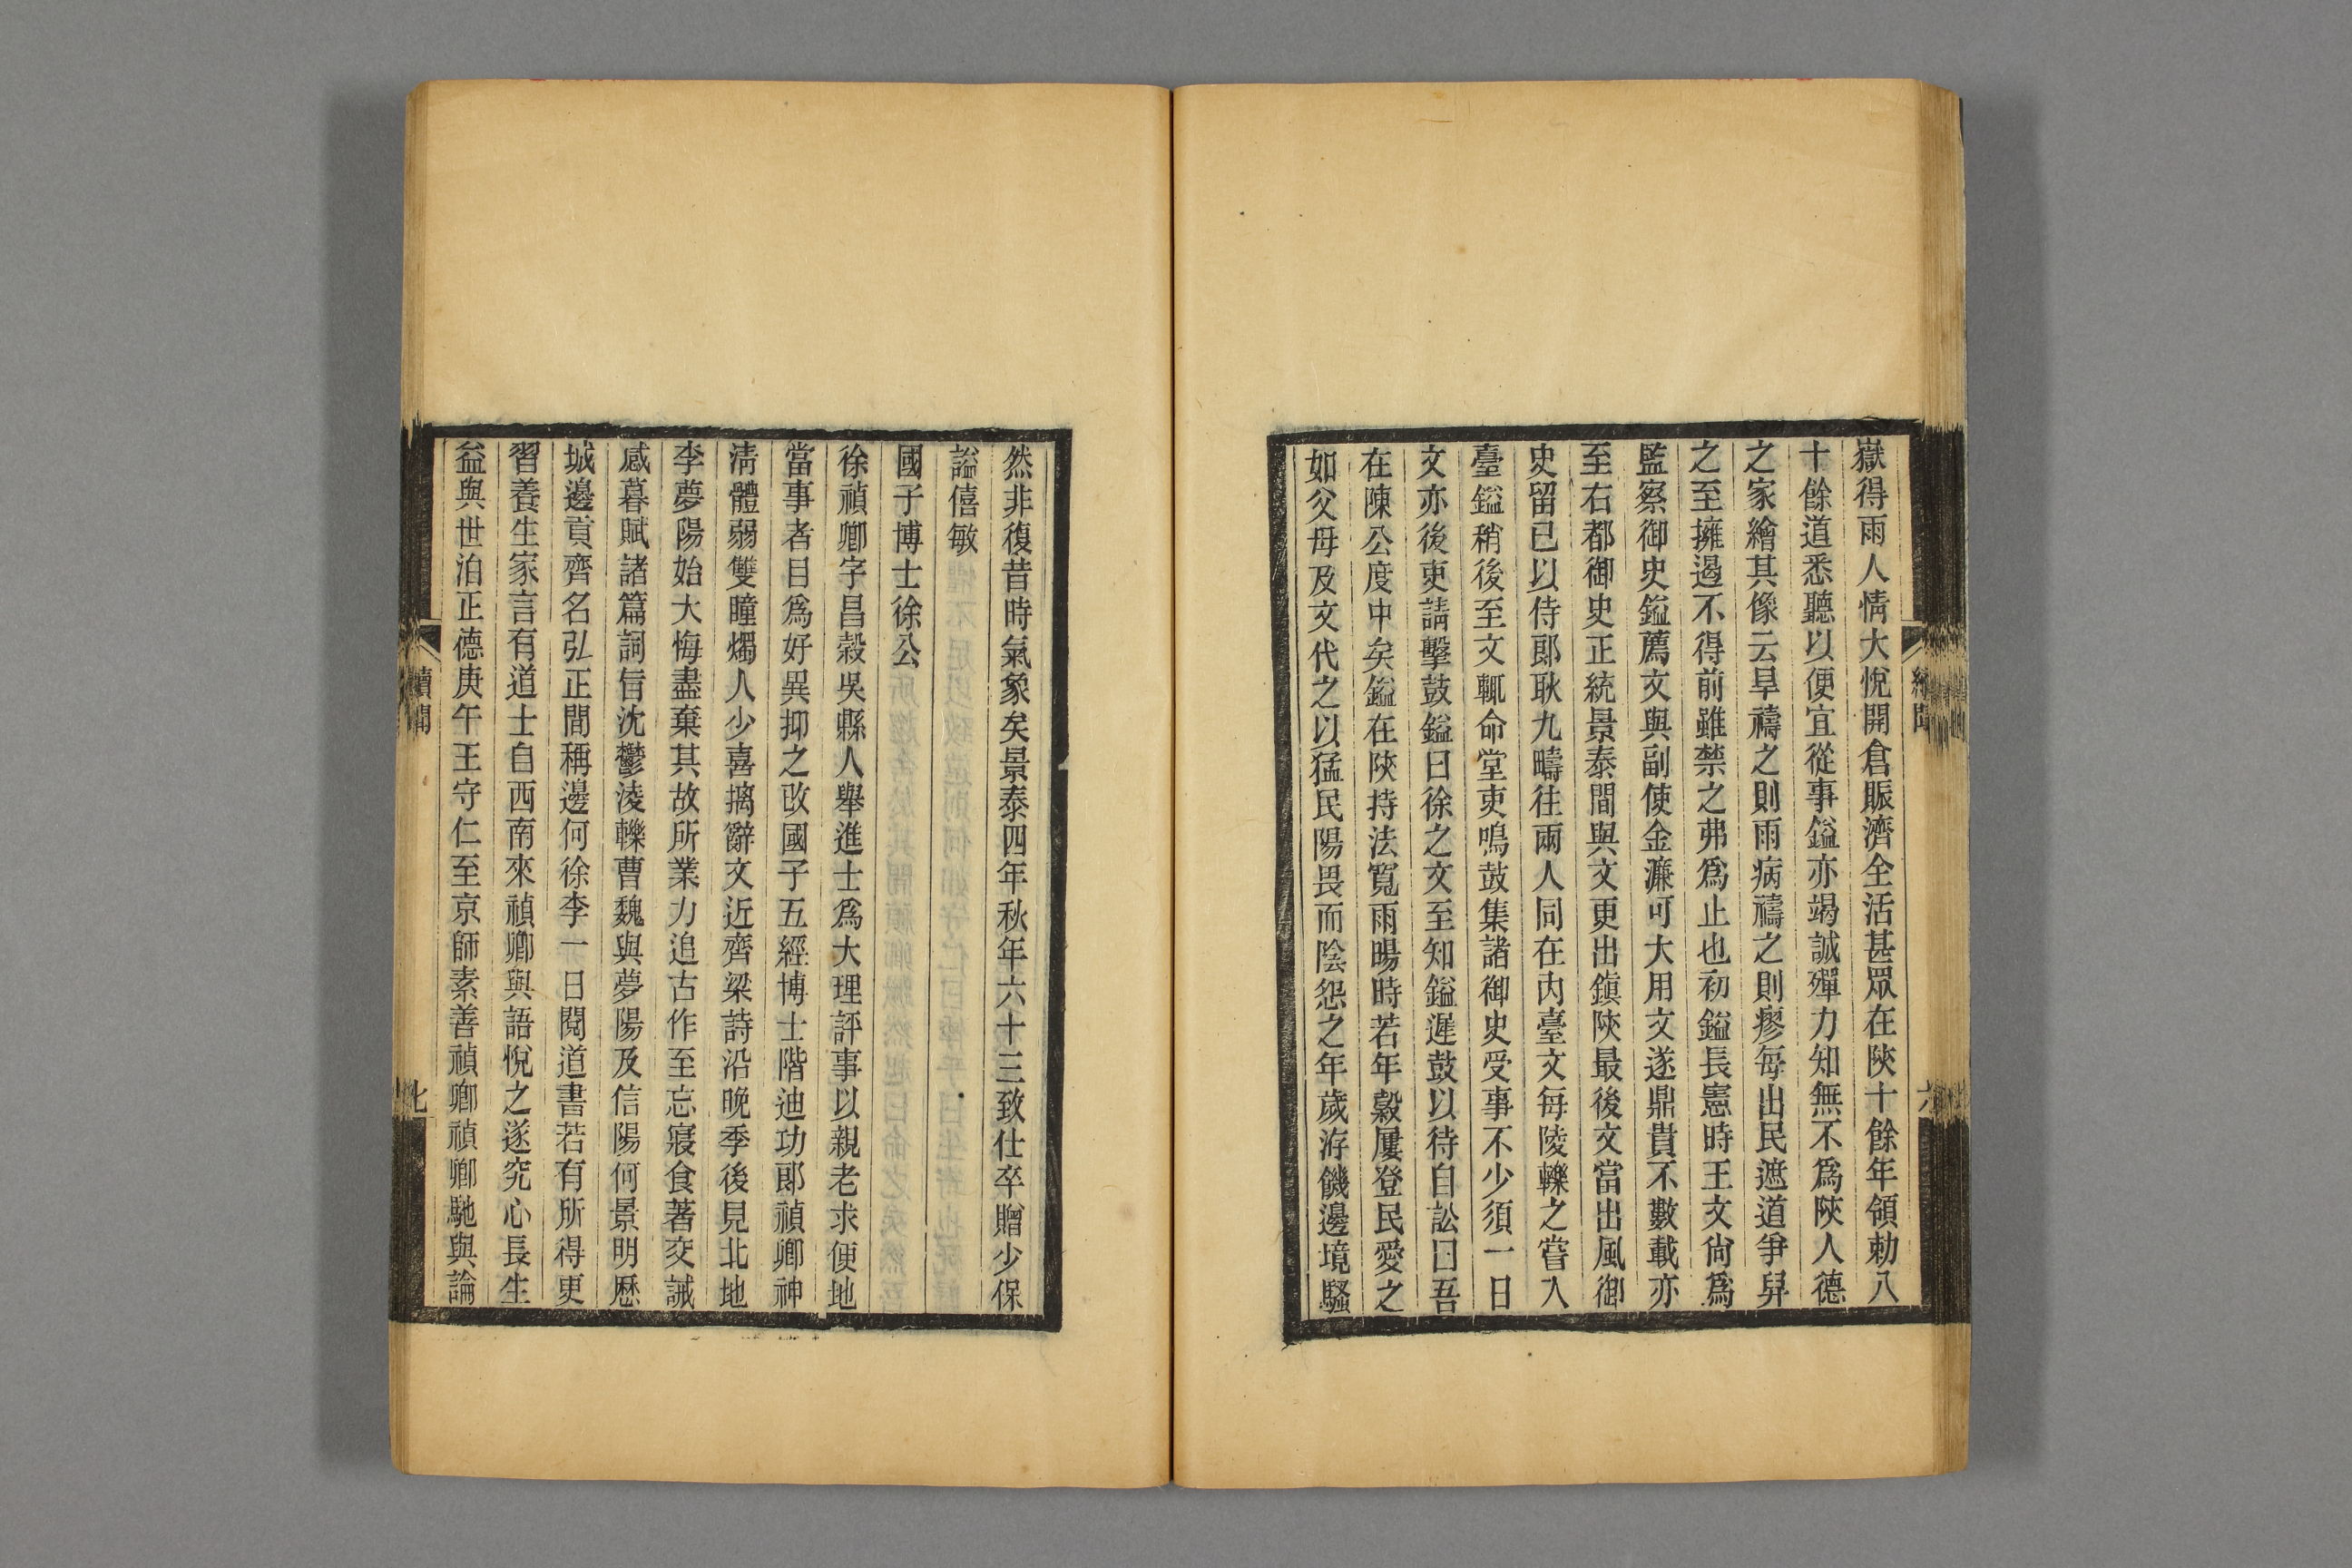 嶽得雨人情大悅開倉賑濟全活甚眾在陝十餘年領勅八
十餘道悉聽以便宜從事鎰亦竭誠殫力知無不爲陝人德
之家繪其像云旱禱之則雨病禱之則瘳每出民遮道爭舁
之至擁遏不得前雖禁之弗爲止也初鎰長憲時王文尙爲
監察御史鎰薦文與副使金濂可大用文遂鼎貴不數載亦
至右都御史正統景泰間與文更出鎭陝最後文當出風御
史留已以侍郞耿九疇往兩人同在內臺文每陵轢之嘗入
臺鎰稍後至文輒命堂吏鳴鼓集諸御史受事不少須一日
文亦後吏請擊鼓鎰曰徐之文至知鎰遲鼓以待自訟曰吾
在陳公度中矣鎰在陝持法寬雨暘時若年穀屢登民愛之
如父母及文代之以猛民陽畏而陰怨之年歲洊饑邊境騷
續聞
六
然非復昔時氣象矣景泰四年秋年六十三致仕卒贈少保
謚僖敏
國子博士徐公
徐禎卿字昌穀吳縣人舉進士爲大理評事以親老求便地
當事者目爲好異抑之改國子五經博士階迪功郞禎卿神
淸體弱雙瞳燭人少喜摛辭文近齊梁詩沿晚季後見北地
李夢陽始大悔盡棄其故所業力追古作至忘寢食著交誡
感暮賦諸篇詞旨沈鬱淩轢曹魏與夢陽及信陽何景明歷
城邊貢齊名弘正間稱邊何徐李一日閱道書若有所得更
習養生家言有道士自西南來禎卿與語悅之遂究心長生
益與世泊正德庚午王守仁至京師素善禎卿禎卿馳與論
續聞
七